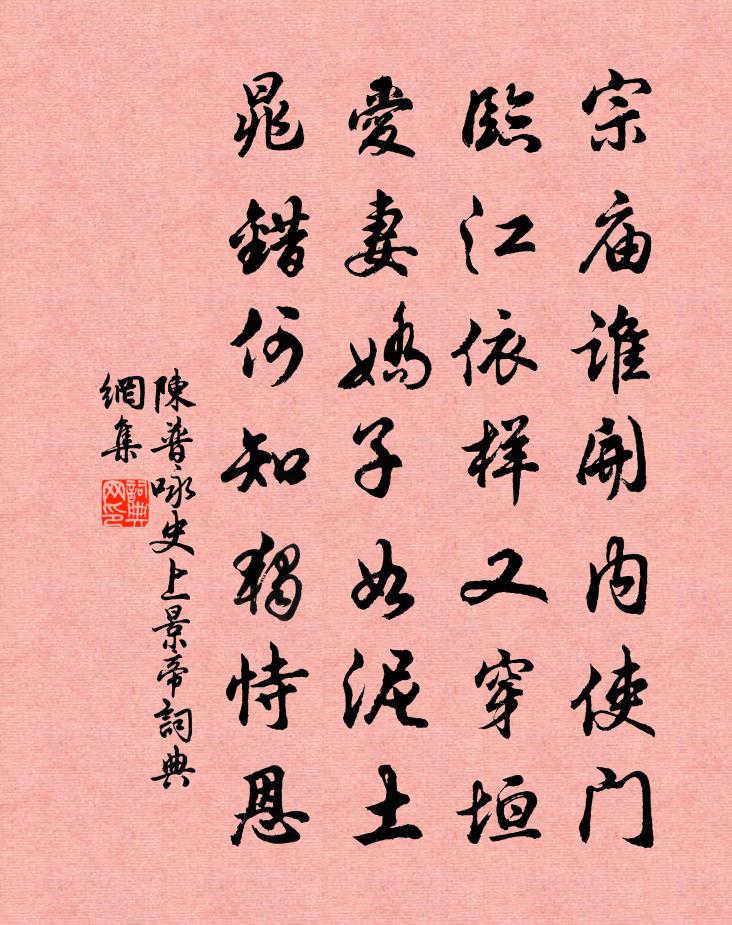 宗庙谁開内使门
臨江依样又穿垣
愛妻嬌子如泥土
晁錯何知獨恃恩
陳普咏史上景帝詞典
網集
詞典网印